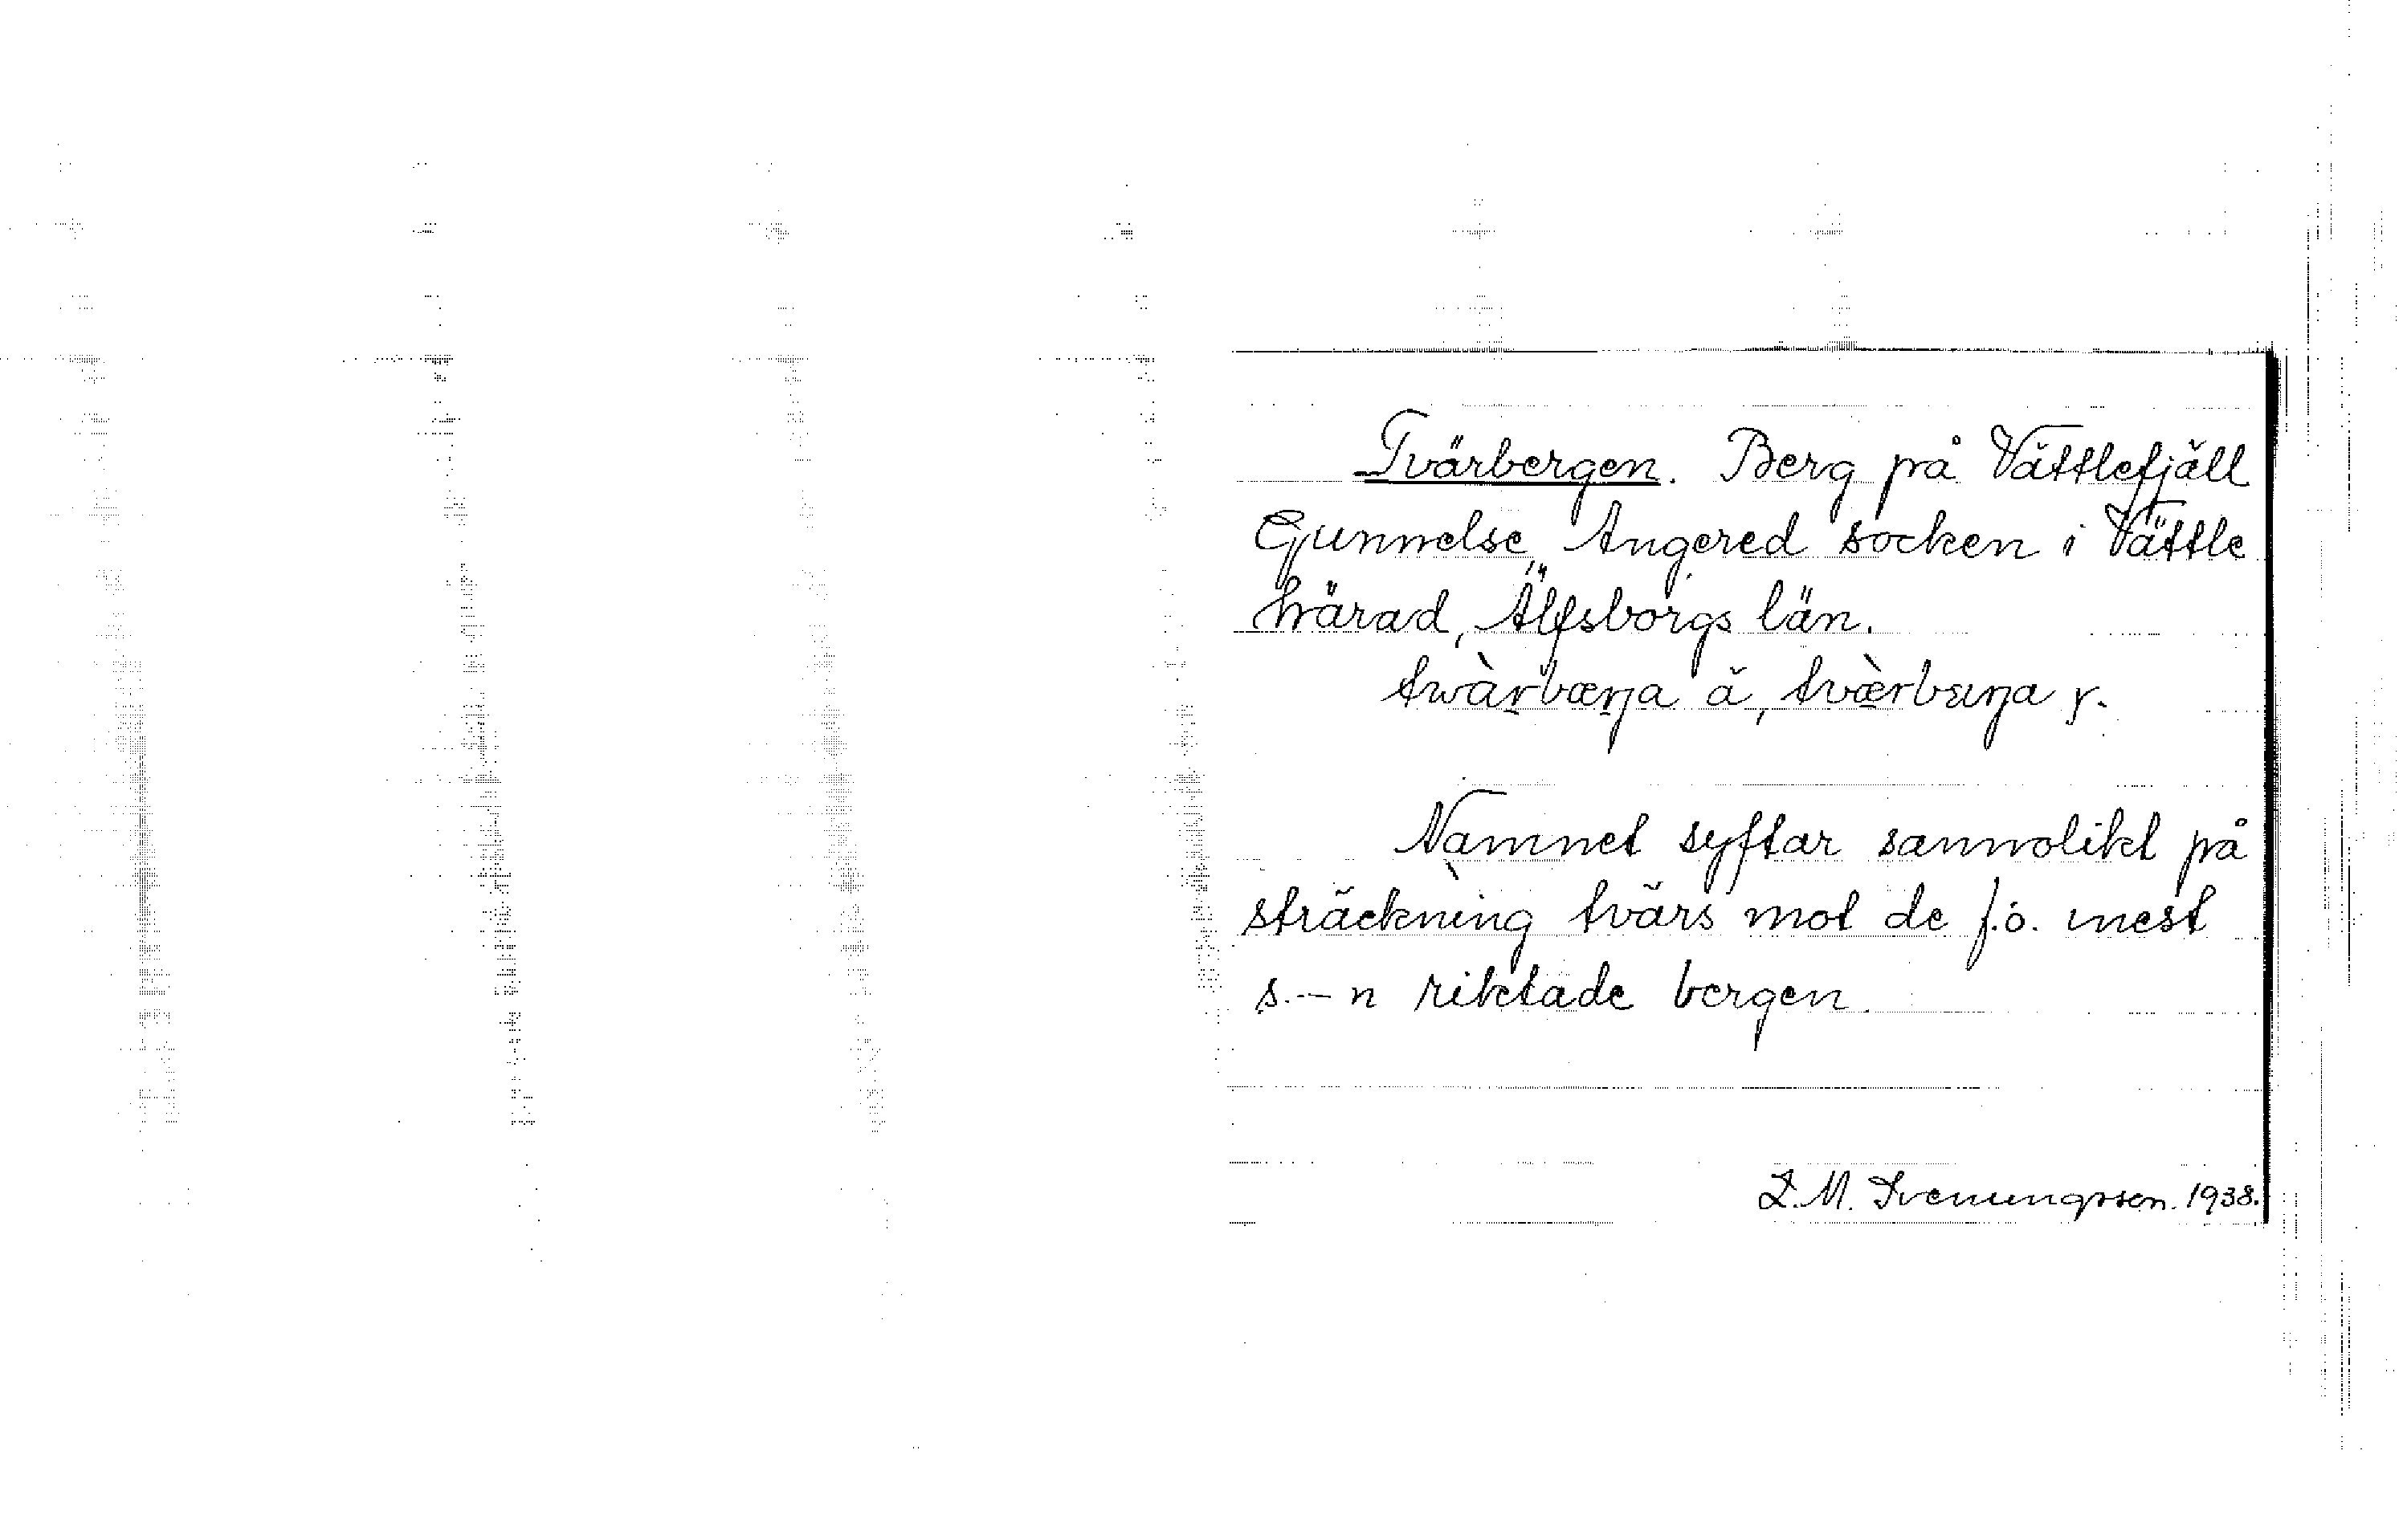 Tvärbergen. Berg på Vättlefjäll
Gunnelse, Angered socken i Vättle
härad, Älfsborgs län.
twàrbærja ä, tvæ̀rbærja y.
Namnet syftar sannolikt på
sträckning tvärs mot de f.ö. mest
s.–n riktade bergen.
L.M. Svenungsson. 1938.